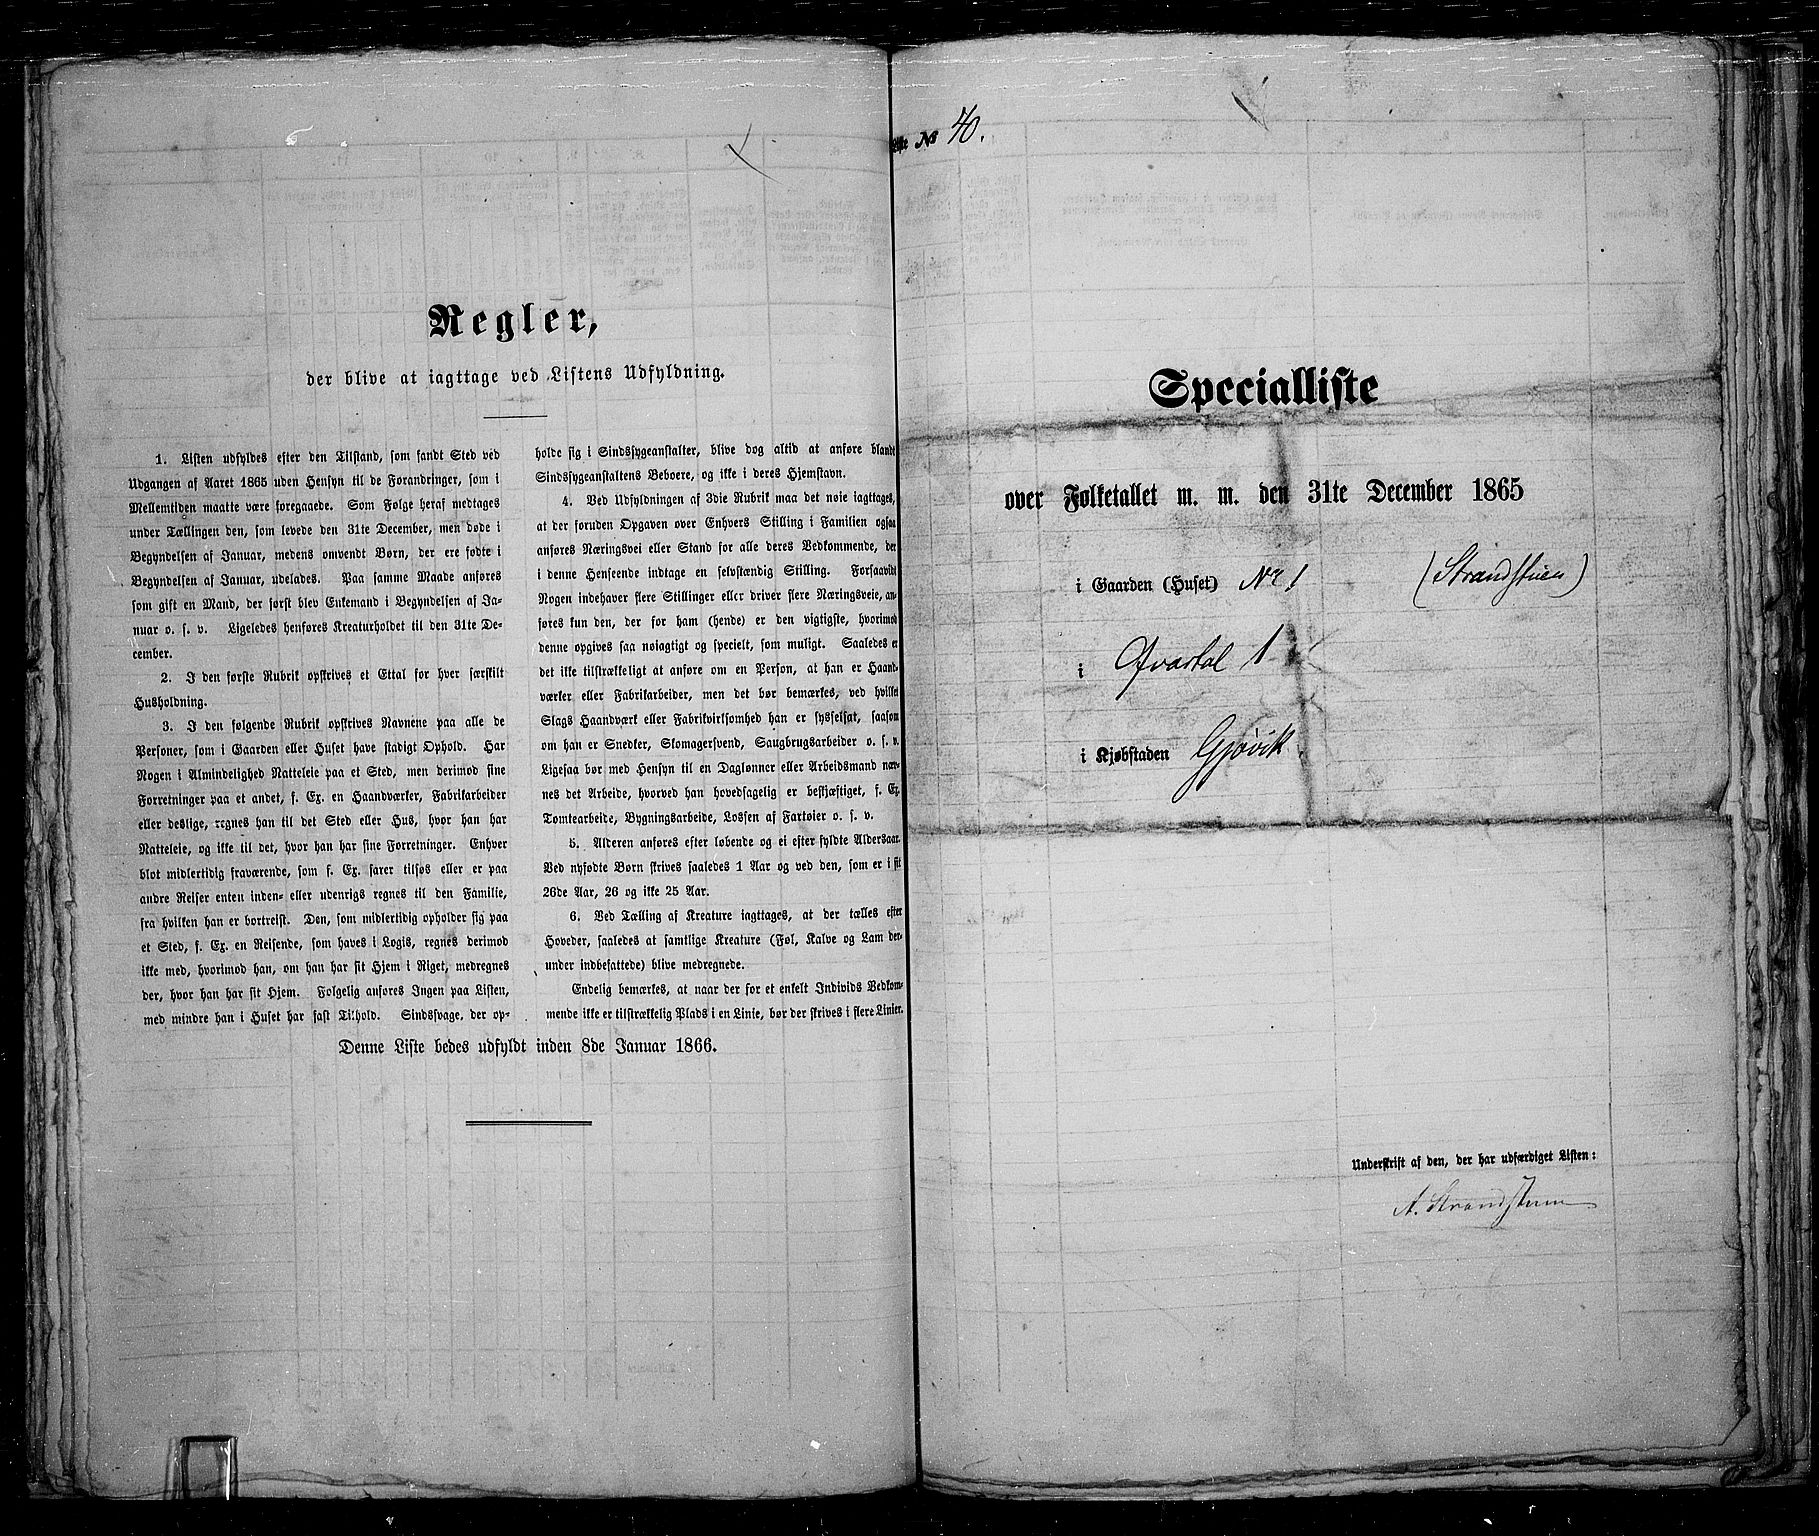 Regler,
der blive at iagttage ved Listens Udfyldning.
1. Listen udfyldes efter den Tilstand, som fandt Sted ved
Udgangen af Aaret 1865 uden Hensyn til de Forandringer, som i
Mellemtiden maatte være foregaaede. Som Følge heraf medtages
under Tællingen den, som levede den 31te December, men døde i
Begyndelsen af Januar, medens omvendt Børn, der ere fødte i
Begyndelsen af Januar, udelades. Paa samme Maade anføres
som gift en Mand, der først blev Enkemand i Begyndelsen af Ja-
nuar o. s. v. Ligeledes henføres Kreaturholdet til den 31te De-
cember.
2. I den første Rubrik opskrives et Ettal for hver særskilt
Husholdning.
3. I den følgende Rubrik opskrives Navnene paa alle de
Personer, som i Gaarden eller Huset have stadigt Ophold. Har
Nogen i Almindelighed Natteleie paa et Sted, men derimod sine
Forretninger paa et andet, f. Ex. en Haandværker, Fabrikarbeider
eller deslige, regnes han til det Sted eller Hus, hvor han har
Natteleie, og ikke til det, hvor han har sine Forretninger. Enhver
blot midlertidig fraværende, som f. Ex. farer tilsøs eller er paa
andre Reiser enten inden- eller udenrigs regnes til den Familie,
fra hvilken han er bortreist. Den, som midlertidig opholder sig paa
et Sted, f. Ex. en Reisende, som haves i Logis, regnes derimod
ikke med, hvorimod han, om han har sit Hjem i Riget, medregnes
der, hvor han har sit Hjem. Følgelig anføres Ingen paa Listen,
med mindre han i Huset har fast Tilhold. Sindssvage, der op-
holde sig i Sindssygeanstalter, blive dog altid at anføre blandt
Sindssygeanstaltens Beboere, og ikke i deres Hjemstavn.
4. Ved Udfyldningen af 3die Rubrik maa det nøie iagttages,
at der foruden Opgaven over Enhvers Stilling i Familien ogsaa
anføres Næringsvei eller Stand for alle deres Vedkommende, der
i denne Henseende indtage en selvstændig Stilling. Forsaavidt
Nogen indehaver flere Stillinger eller driver flere Næringsveie, an-
føres kun den, der for ham (hende) er den vigtigste, hvorimod
denne opgives saa nøiagtigt og specielt, som muligt. Saaledes er
det ikke tilstrækkeligt at anføre om en Person, at han er Haand-
værker eller Fabrikarbeider, men det bør bemærkes, ved hvilket
Slags Haandværk eller Fabrikvirksomhed han er sysselsat, saasom
om han er Snedker, Skomagersvend, Saugbrugsarbeider o. s. v.
Ligesaa bør med Hensyn til en Daglønner eller Arbeidsmand næv-
nes det Arbeide, hvorved han hovedsagelig er beskjæftiget, f. Ex.
Tomtearbeide, Bygningsarbeide, Lossen af Fartøier o. s. v.
5. Alderen anføres efter løbende og ei efter fyldte Aldersaar.
Ved nyfødte Børn skrives saaledes 1 Aar og ved den, som er i sit
26de Aar, 26 og ikke 25 Aar.
6. Ved Tælling af Kreature iagttages, at der tælles efter
Hoveder, saaledes at samtlige Kreature (Føl, Kalve og Lam der-
under indbefattede) blive medregnede.
Endelig bemærkes, at naar der for et enkelt Individs Vedkom-
mende ikke er tilstrækkelig Plads i en Linie, bør der skrives i flere Linier.
Denne Liste bedes udfyldt inden 8de Januar 1866.
Liste № 40.
Specialliste
over Folketallet m. m. den 31te December 1865
i Gaarden (Huset) Nr 1 (Strandstuen)
i Qvartal 1
i Kjøbstaden Gjøvik.
Underskrift af den, der har udfærdiget Listen:
A. Strandstuen